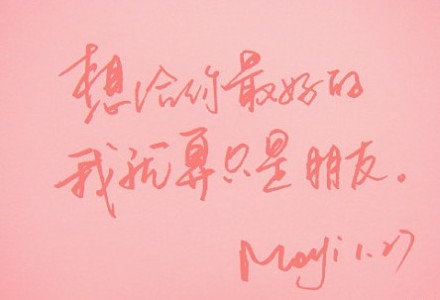 想给你最好的
我就算只是朋友。
Mayi 1.27